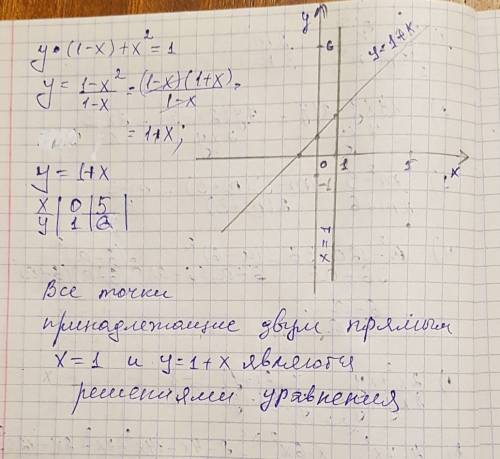 y·(1-x)+x²=1
y = (1-x²)/(1-x) = (1-x)(1+x)/(1-x) =
= 1+x;
y = 1+x
x | 0 | 5 |
y | 1 | 6 |
Все точки
принадлежащие двум прямым
x=1 и y=1+x являются
решениями уравнения
y
6
y=1+x
0 1 5 x
-1
x=1